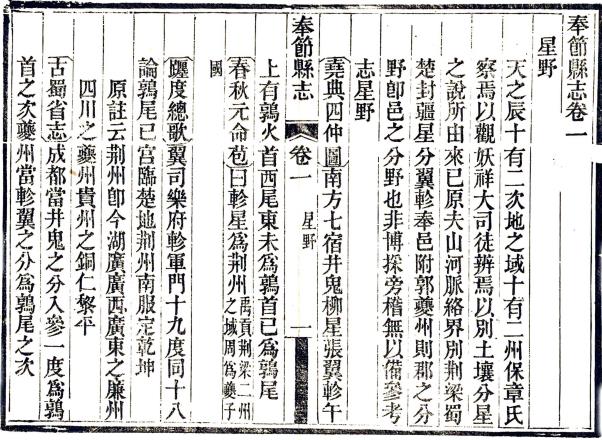 奉節縣志卷一
星野
天之辰十有二次地之域十有二州保章氏
察焉以觀妖祥大司徒辨焉以別土壤分星
之說所由來已原夫山河脈絡界別荆梁蜀
楚封疆星分翼軫奉邑附郭夔州則郡之分
野卽邑之分野也非博採旁稽無以備參考
志星野
堯典四仲圖南方七宿井鬼柳星張翼軫午
奉節縣志
卷一
星野
一
上有鶉火首西尾東未爲鶉首巳爲鶉尾
春秋元命苞曰軫星爲荆州之域周爲夔子
禹貢荆梁二州
國
躔度總歌翼司樂府軫軍門十九度同十八
論鶉尾已宮臨楚地荆州南服定乾坤
原註云荆州卽今湖廣廣西廣東之廉州
四川之夔州貴州之銅仁黎平
古蜀省志成都當井鬼之分入參一度爲鶉
首之次夔州當軫翼之分爲鶉尾之次